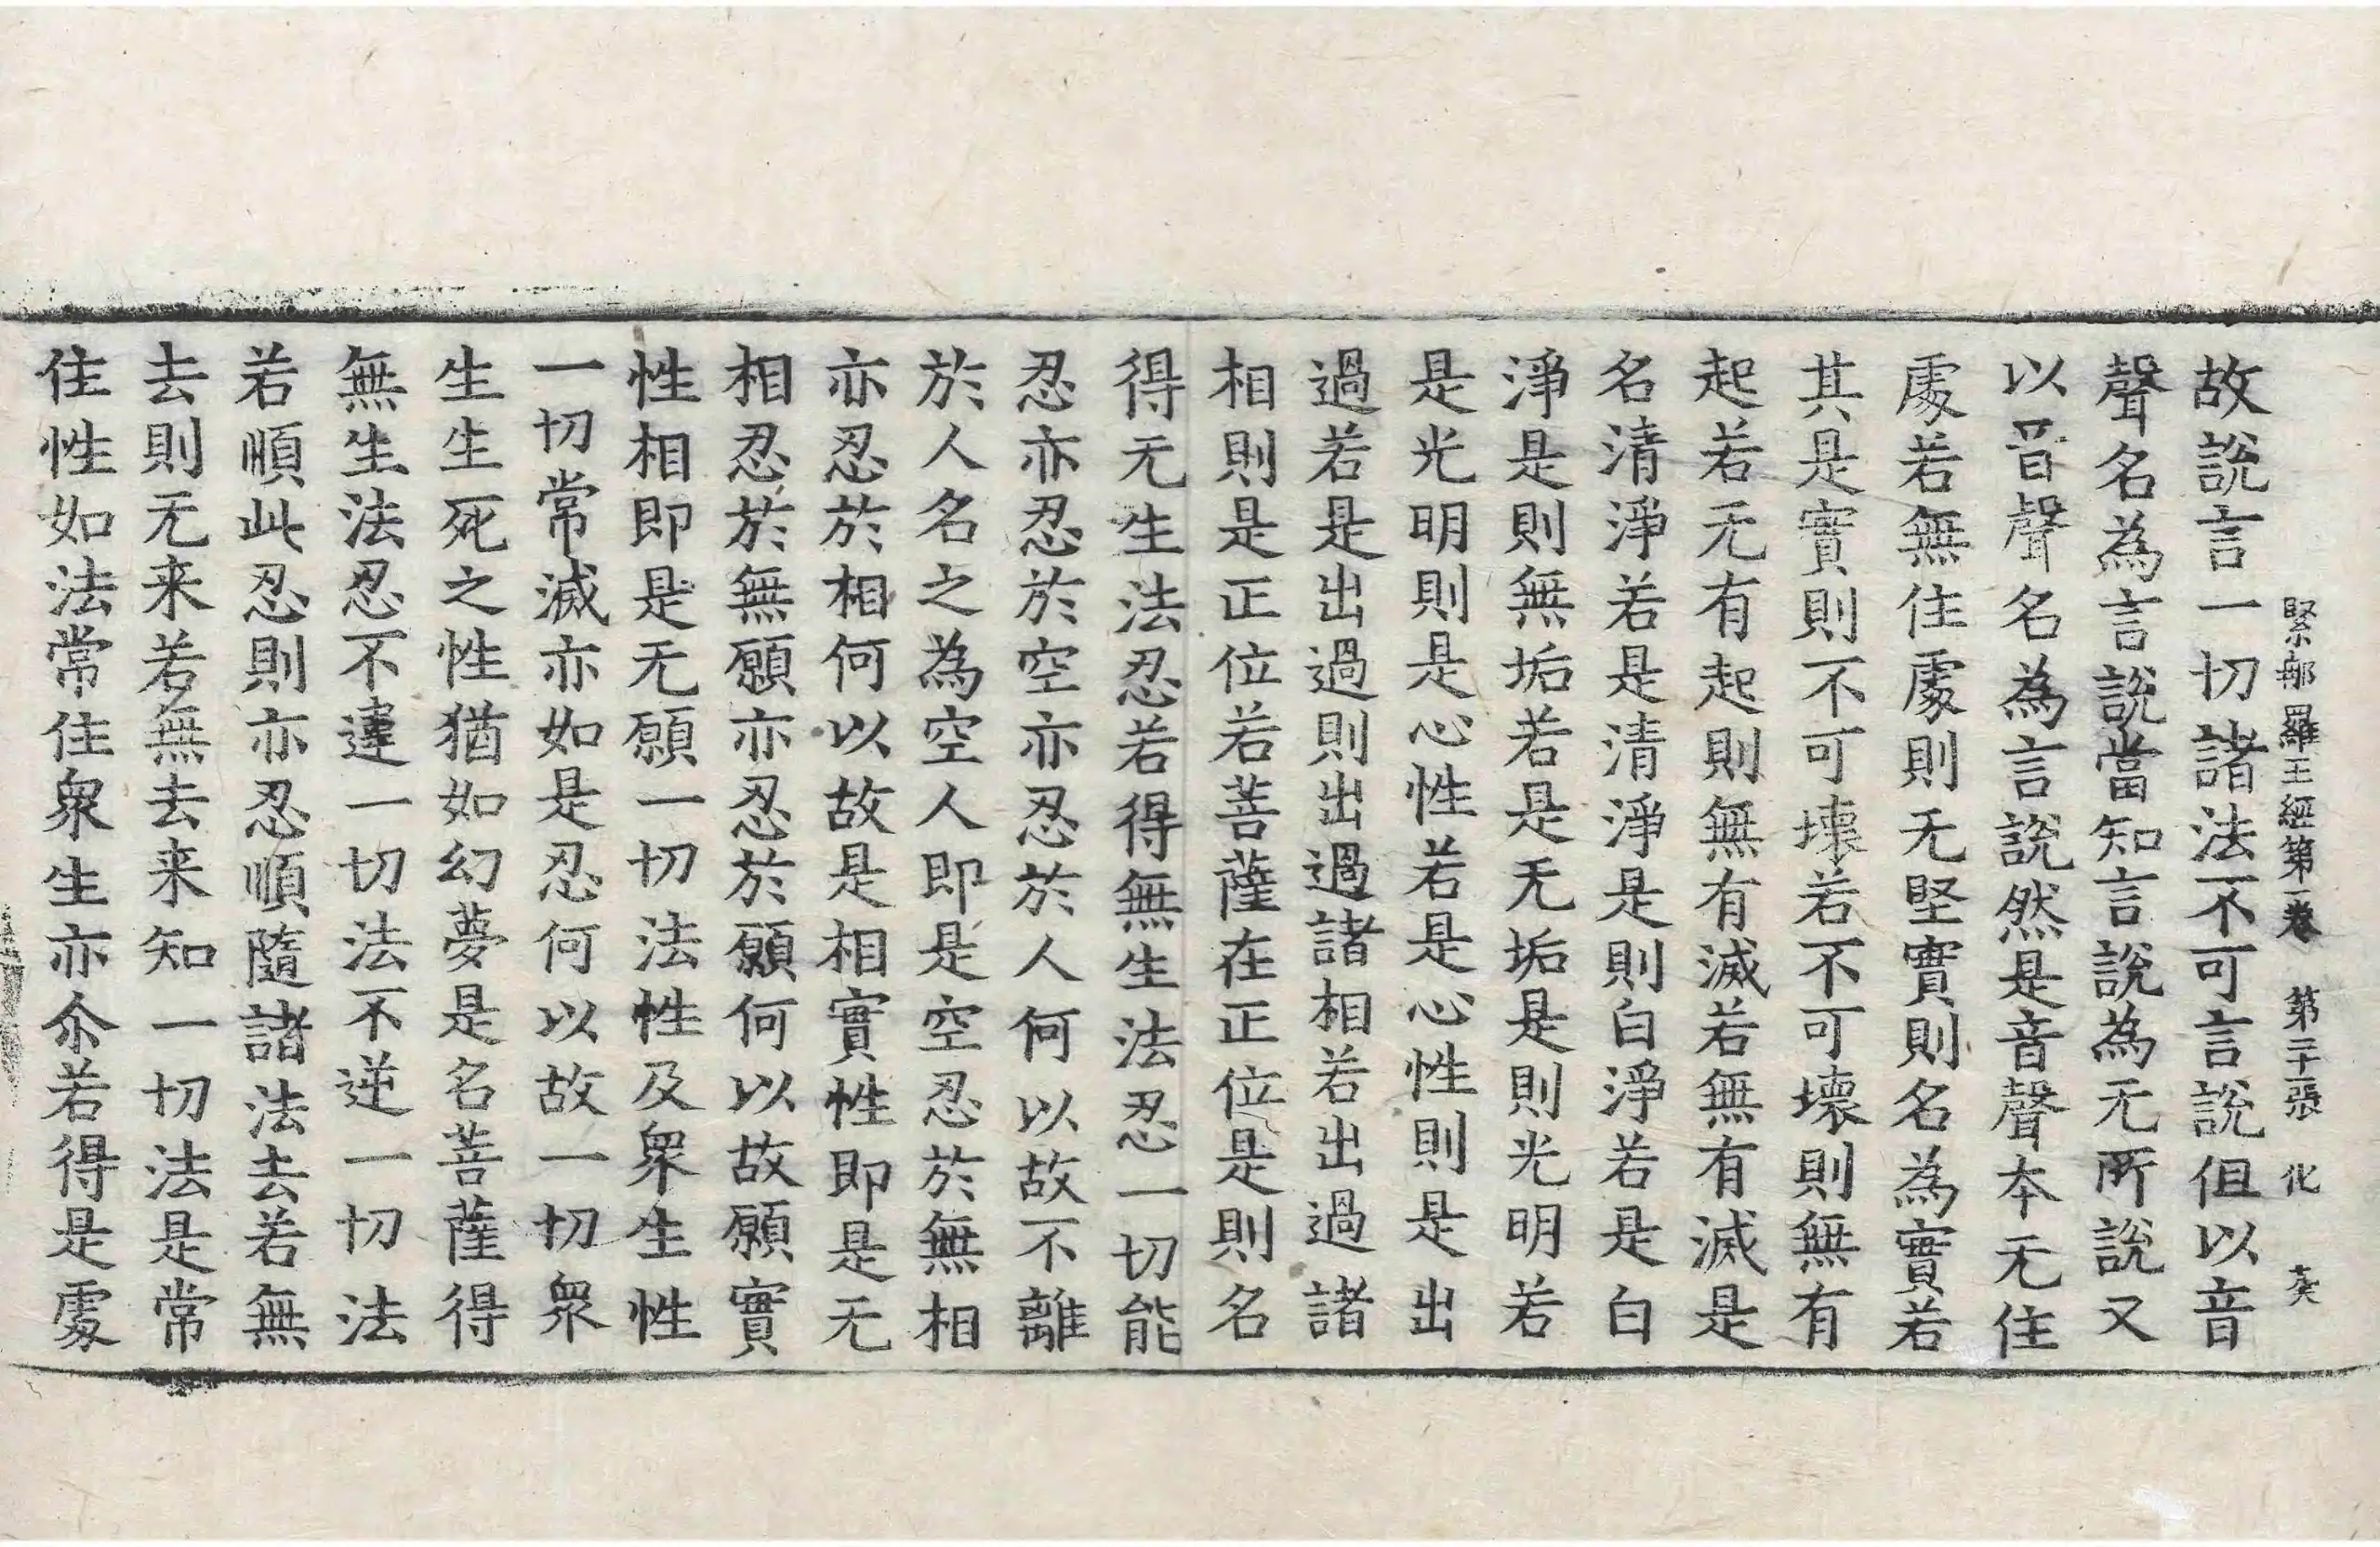 緊那羅王經第一卷 第二十一張 化 葵
故說言一切諸法不可言說但以音
聲名為言說當知言說為无所說又
以音聲名為言說然是音聲本无住
處若無住處則无堅實則名為實若
其是實則不可壞若不可壞則無有
起若无有起則無有滅若無有滅是
名清淨若是清淨是則白淨若是白
淨是則無垢若是无垢是則光明若
是光明則是心性若是心性則是出
過若是出過則出過諸相若出過諸
相則是正位若菩薩在正位是則名
得无生法忍若得無生法忍一切能
忍亦忍於空亦忍於人何以故不離
於人名之為空人即是空忍於無相
亦忍於相何以故是相實性即是无
相忍於無願亦忍於願何以故願實
性相即是无願一切法性及衆生性
一切常滅亦如是忍何以故一切衆
生生死之性猶如幻夢是名菩薩得
無生法忍不違一切法不逆一切法
若順此忍則亦忍順隨諸法去若無
去則无来若無去来知一切法是常
住性如法常住衆生亦尒若得是處